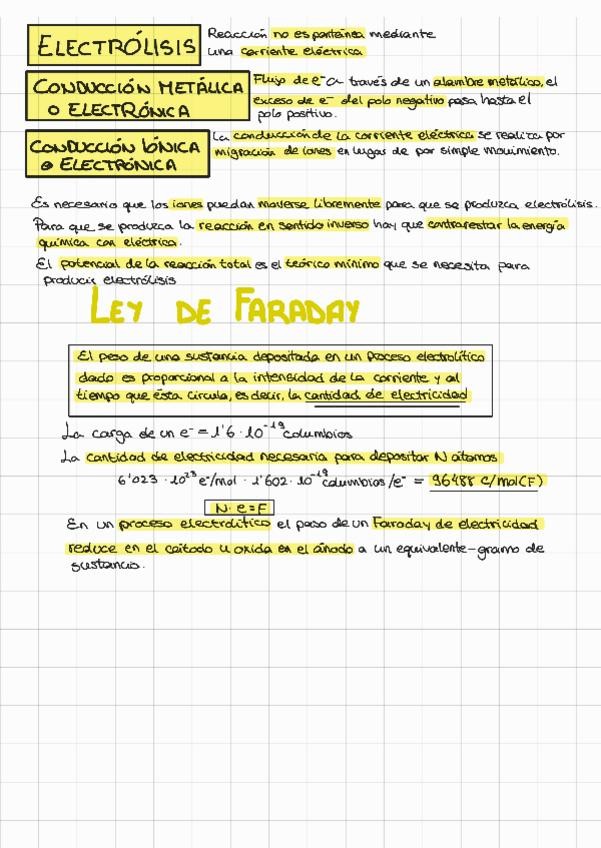 ELECTRÓLISIS
Reacción no espontánea mediante
una corriente eléctrica
CONDUCCIÓN METÁLICA
O ELECTRÓNICA
Flujo de e⁻ a través de un alambre metálico, el
exceso de e⁻ del polo negativo pasa hasta el
polo positivo.
CONDUCCIÓN IÓNICA
O ELECTRÓNICA
La conducción de la corriente eléctrica se realiza por
migración de iones en lugar de por simple movimiento.
Es necesario que los iones puedan moverse libremente para que se produzca electrólisis.
Para que se produzca la reacción en sentido inverso hay que contrarestar la energía
química con eléctrica.
El potencial de la reacción total es el teórico mínimo que se necesita para
producir electrólisis
LEY DE FARADAY
El peso de una sustancia depositada en un proceso electrolítico
dado es proporcional a la intensidad de la corriente y al
tiempo que ésta circula, es decir, la cantidad de electricidad
La carga de un e⁻ = 1'6 · 10⁻¹⁹ columbios
La cantidad de electricidad necesaria para depositar N átomos
6'023 · 10²³ e⁻/mol · 1'602 · 10⁻¹⁹ columbios/e⁻ = 96488 C/mol (F)
N · e = F
En un proceso electrolítico el paso de un Faraday de electricidad
reduce en el cátodo u oxida en el ánodo a un equivalente-gramo de
sustancia.